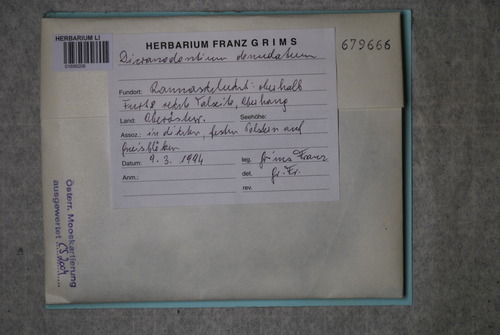 HERBARIUM LI
HERBARIUM FRANZ GRIMS
679666
Dicranodontium denudatum
Fundort: Rannaschlucht: oberhalb
rechte Talseite, Oberhang
Land: Oberösterr. Seehöhe:
Assoz.: in dichten, festen Polstern auf
Gneisblöcken
Datum: 9. 3. 1994 leg. Grims Franz
Anm.: det. Gr. Fr.
rev.
Österr. Mooskartierung
ausgewertet 2004